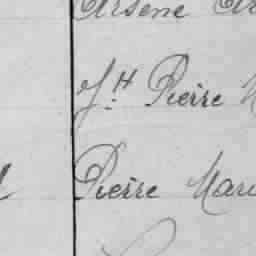 Arsène
J.H Pierre
Pierre Mari